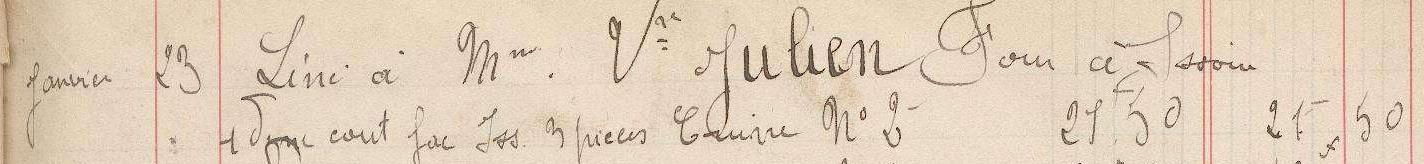 Janvier 23 Livré à Mme. Vve Julien Four à Issoire
" 1 cout fac Iss. 3 pieces Cuivre No 2 21 50 21 50